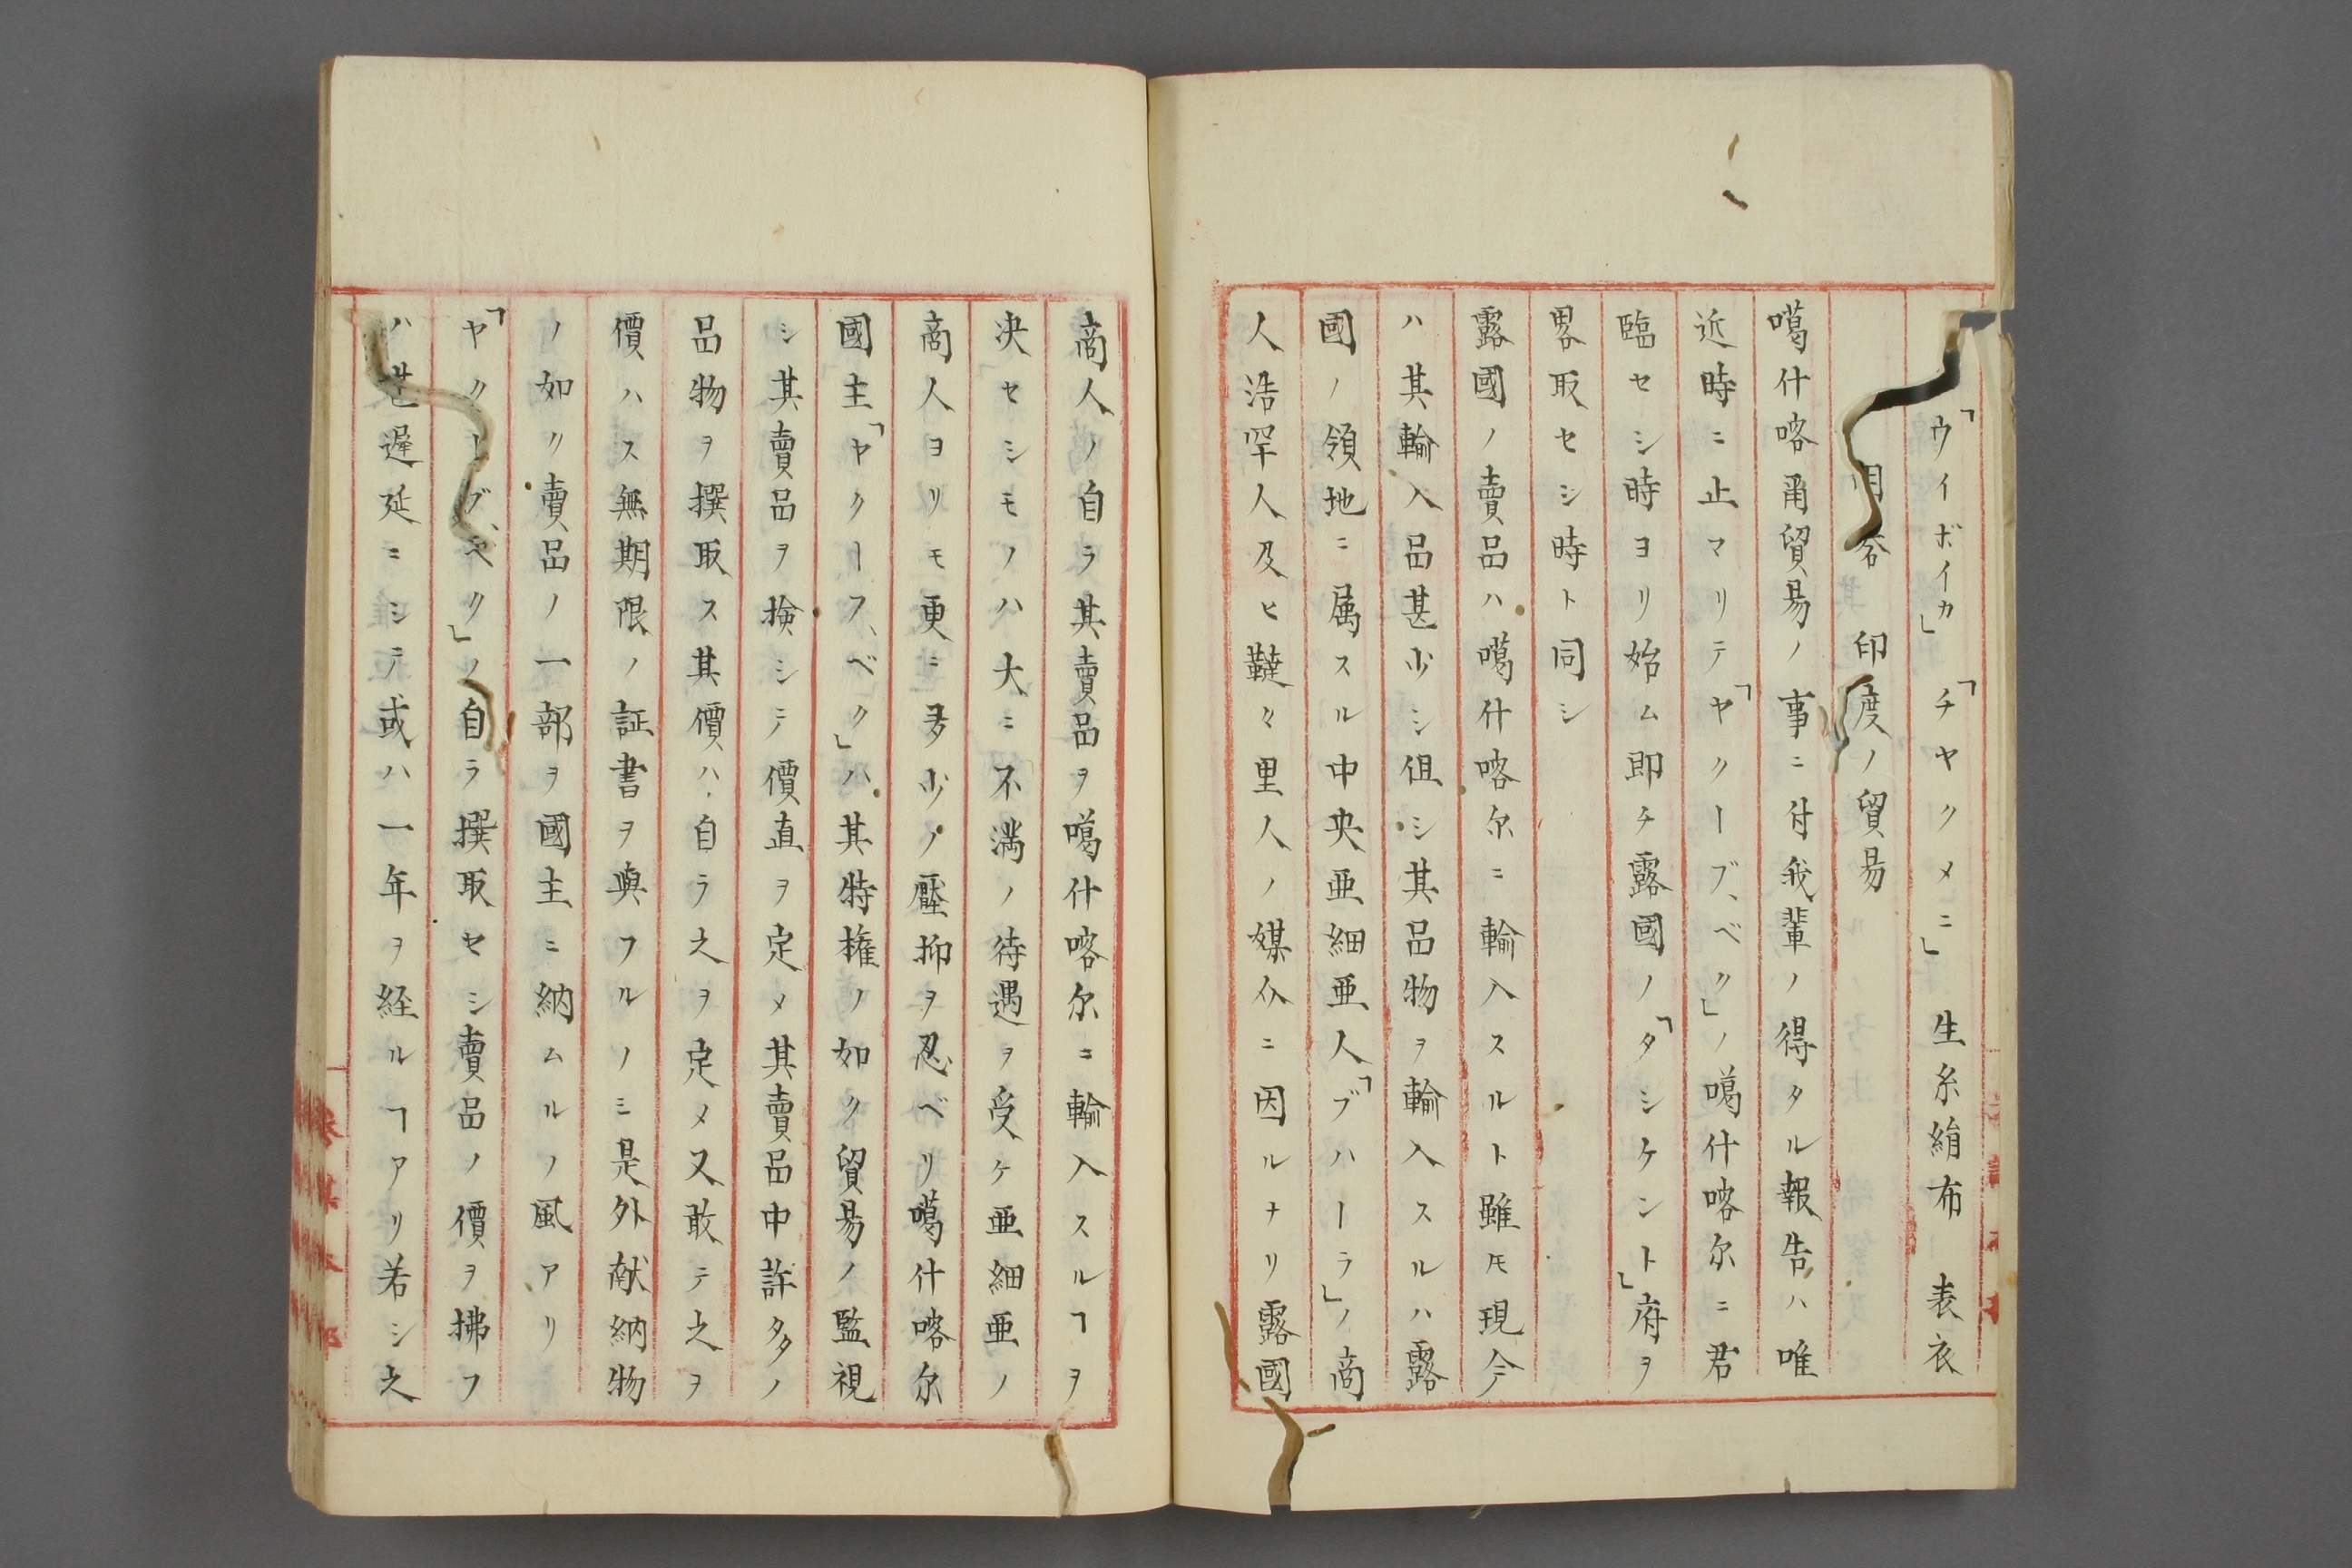 「ウイボイカ」「チヤクメニ」 生糸絹布 表衣
印度ノ貿易
噶什喀甭貿易ノ事ニ付我輩ノ得タル報告ハ唯
近時ニ止マリテ「ヤクーブ、ベク」ノ噶什喀尓ニ君
臨セシ時ヨリ始ム即チ露國ノ「タシケント」府ヲ
畧取セシ時ト同シ
露國ノ賣品ハ噶什喀尓ニ輸入スルト雖𪜈現今
ハ其輸入品甚少シ伹シ其品物ヲ輸入スルハ露
國ノ領地ニ属スル中央亜細亜人「ブハーラ」ノ商
人浩罕人及ヒ韃々里人ノ媒介ニ因ルナリ露國
商人ノ自ラ其賣品ヲ噶什喀尓ニ輸入スルヿヲ
决セシモノハ大ニ不満ノ待遇ヲ受ケ亜細亜ノ
商人ヨリモ更ニ多少ノ壓抑ヲ忍ベリ噶什喀尓
國主「ヤクーフ、ベク」ハ其特権ノ如ク貿易ノ監視
シ其賣品ヲ撿シテ價直ヲ定メ其賣品中許多ノ
品物ヲ撰取ス其價ハ自ラ之ヲ定メ又敢テ之ヲ
價ハス無期限ノ証書ヲ與フルノミ是外献納物
ノ如ク賣品ノ一部ヲ國主ニ納ムルノ風アリ
「ヤクーブ、ベク」ノ自ラ撰取セシ賣品ノ價ヲ拂フ
ハ甚遅延ニシテ或ハ一年ヲ経ルヿアリ若シ之